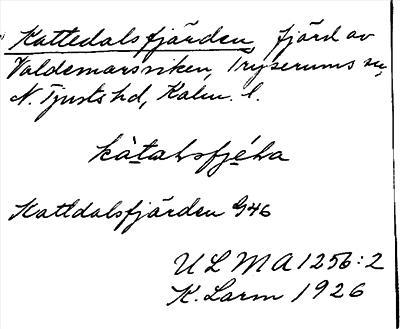 Kattedalsfjärden, fjärd av
Valdemarsviken, Tryserums sn,
N. Tjusts hd, Kalm. l.
kàtalsfjéla
Kattdalsfjärden G46
ULMA 1256:2
K. Larm 1926